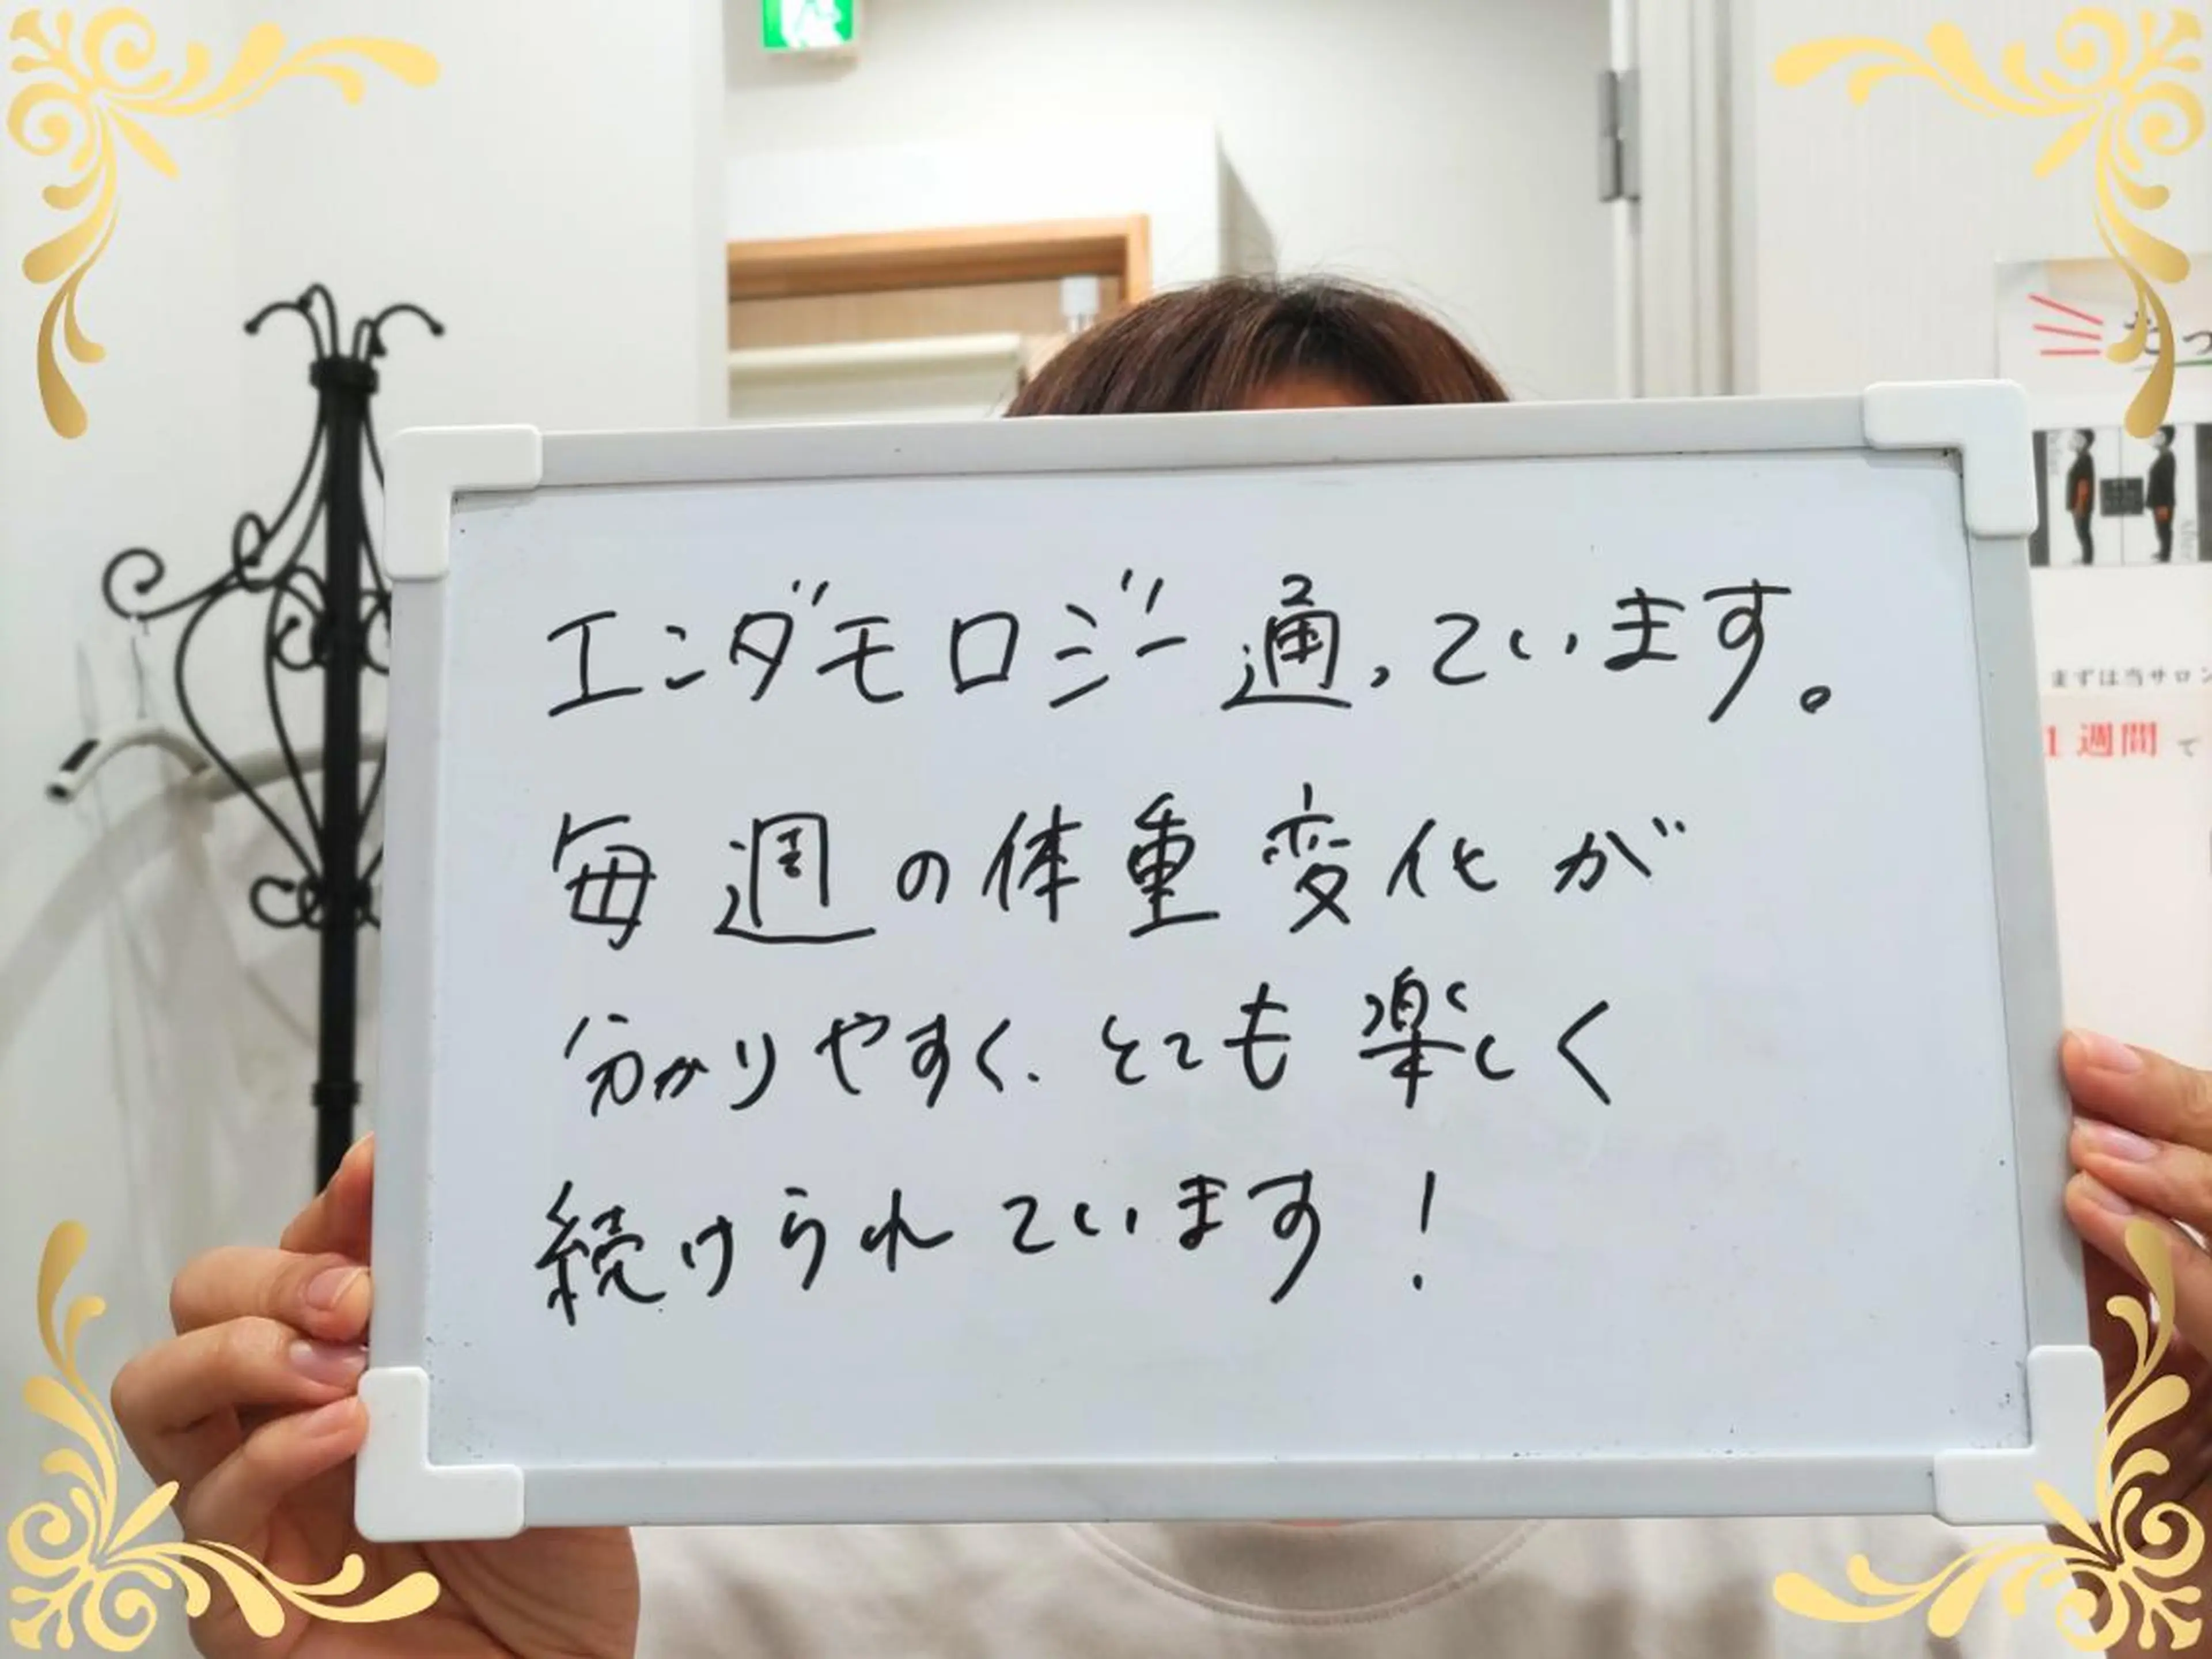 エンダモロジー通っています。
毎週の体重変化が
分かりやすく、とても楽しく
続けられています!
まずは当サロン
1週間で